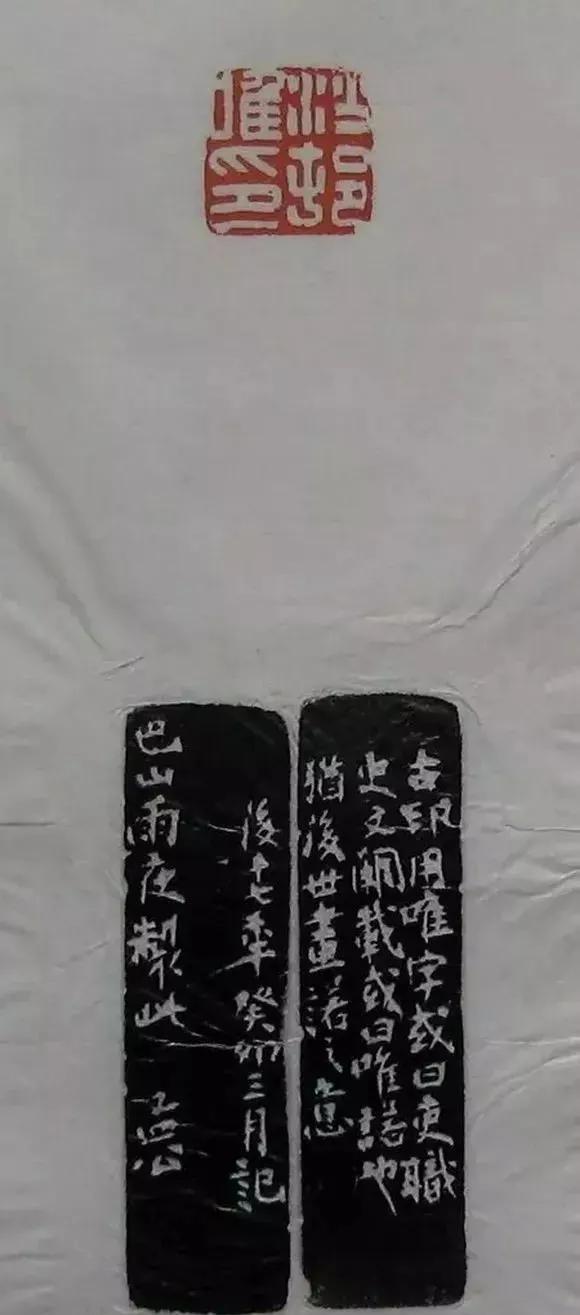 唯印
古印用唯字或曰吏職
史文闕載或曰唯諾也
猶後世畫諾之意
後十七年癸卯三月記
巴山雨夜製此